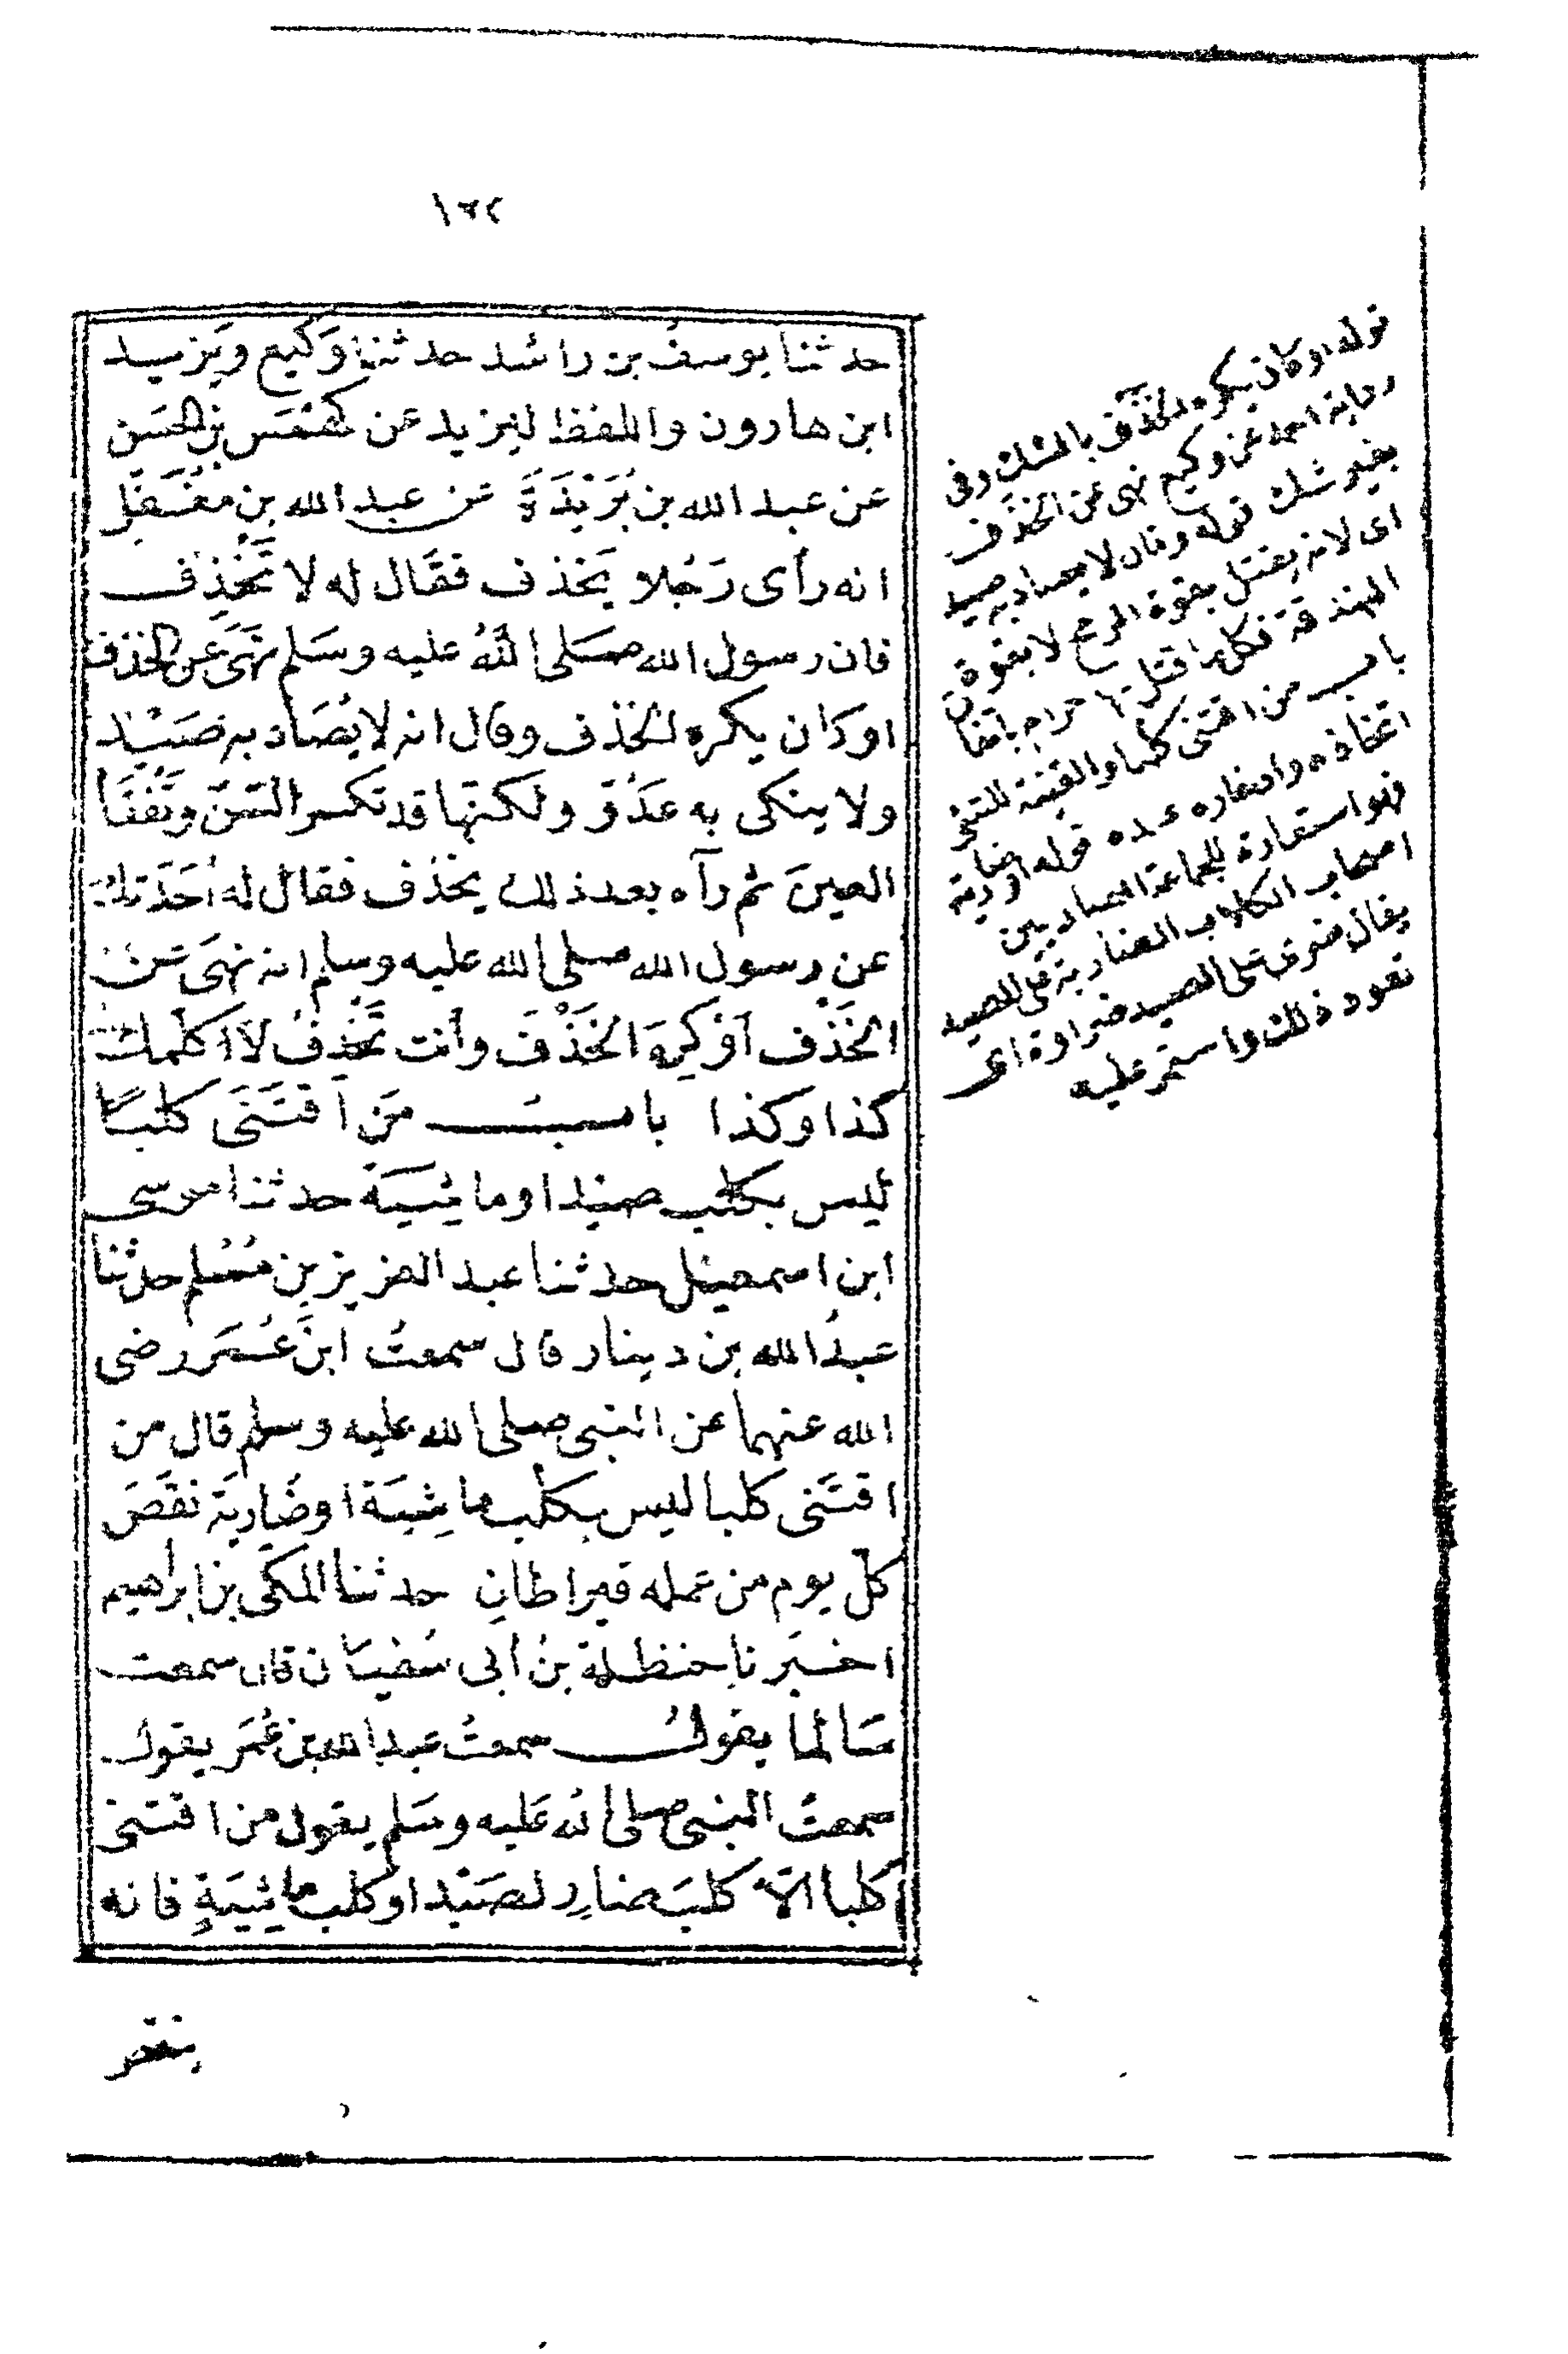 ١٣٢
حدثنا يوسفُ بن راشد حدثنا وَكيع ويَزيد
ابن هارون واللفظ ليزيد عن كَهْمَس بن الحسَن
عن عبد الله بن بُرَيْدَةَ عن عبد الله بن مغَفَّلِ
انه رأى رَجُلا يَخذف فقَال له لا تَخْذِف
فان رسول الله صَلى اللهُ عليه وسَلم نَهَى عن الخذف
او كان يكره الخذف وقال انه لا يُصَاد به صَيْد
ولا ينكى به عَدُوّ ولكنّها قد تكسر السّنّ وتَفْقَأ
العينَ ثم رآه بعد ذلك يخذف فقال له أحَدّثك
عن رسول الله صلى الله عليه وسلم انه نهَى عن
الخَذْف أوْ كَرِهَ الخَذْفَ وأنت تَخْذِفُ لا اكلّمك
كذا وكذا باب مَن اقتَنَى كلبًا
ليس بكلب صَيْد او ماشيَة حدثنا موسى
ابن اسمعيل حدثنا عبد العزيز بن مُسْلم حدثنا
عبدُ الله بن دينار قال سمعتُ ابنَ عُمَر رضى
الله عنهما عن النبى صلى الله عليه وسلم قال من
اقتَنى كلبا ليس بكلب ماشِيَة او ضَاريَة نقَصَ
كلّ يوم من عمله قيراطانِ حدثنا المكى بن ابراهيم
اخبَرنا حنظلة بنُ أبى سُفيَان قال سمعت
سَالما يقولُ سمعتُ عبد الله بن عُمَر يقول
سمعتُ النبى صلى الله عَليه وسَلم يقول من اقتنى
كلبا الاّ كلبَ ضارٍ لصَيْد او كلب ماشيَةٍ فانه
ينقص
قوله او كان يكره الخذف بالشك وفى
رواية احمد عن وكيع نهى عن الخذف
بغير شك قوله وقال لا يصاد به صيد
اى لانه يقتل بقوة الرمى لا بقوة
البندقة فكل ما قتل بها حرام باتفاق
باب من اقتنى كلبا والقنية للشئ
اتخاذه وادخاره عنده قوله او ضارية
فهو استعارة للجماعة الضاريين
اصحاب الكلاب الضارية على الصيد
يقال ضرى على الصيد ضراوة اى
تعود ذلك واستمر عليه